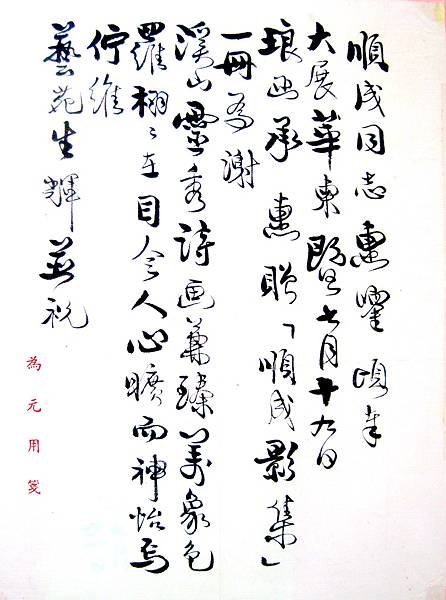 順成同志惠 頃奉
大展華柬暨七月十九日
琅函承 惠贈「順成影集」
一冊為謝
溪山靈秀詩画兼臻萬象包
羅栩々在目令人心曠而神怡焉
佇維
藝苑生輝並祝
為元用箋